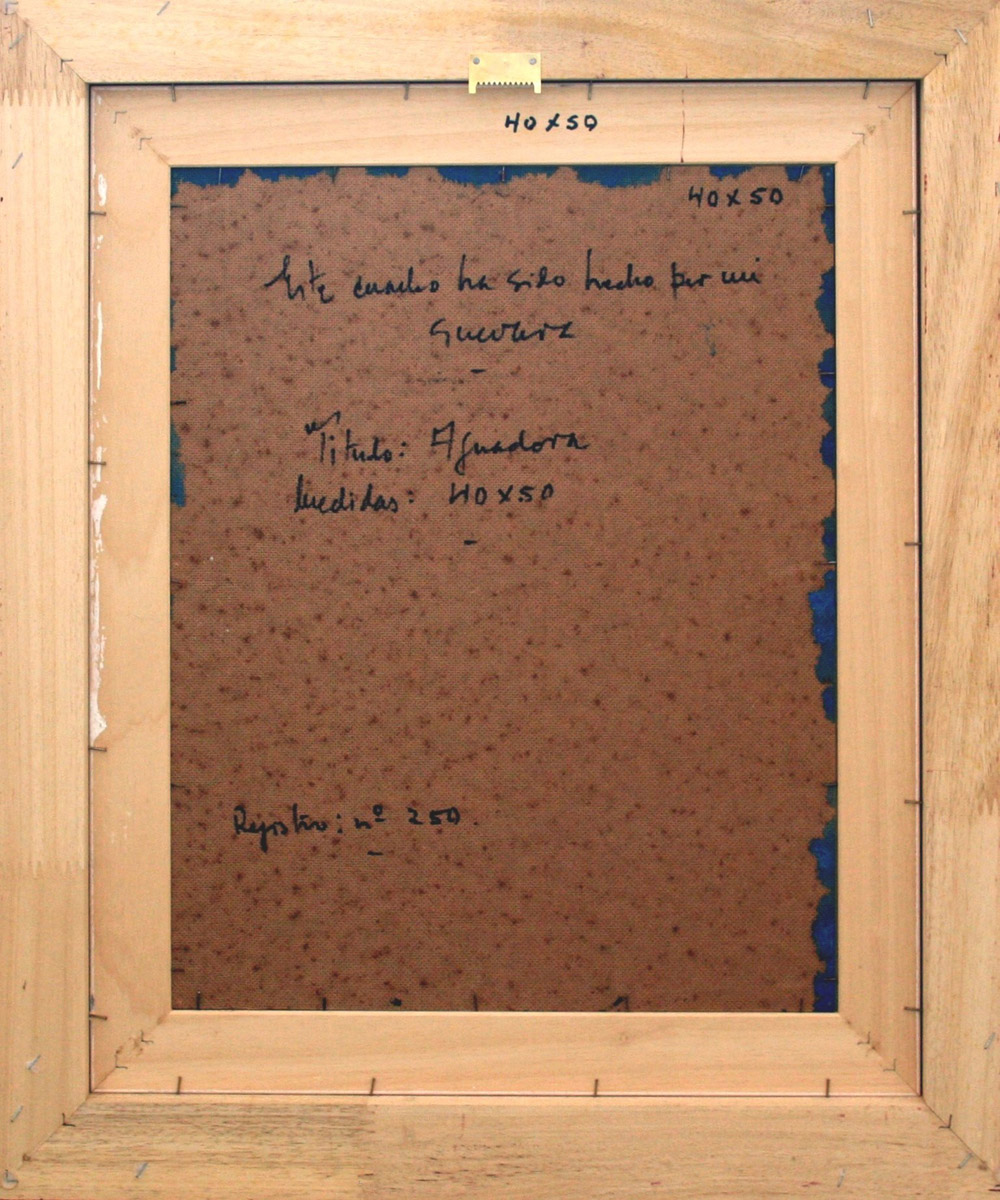 40x50
40x50
Este cuadro ha sido hecho por mi
Guevara
Titulo: Aguadora
Medidas: 40x50
Registro: nº 250.